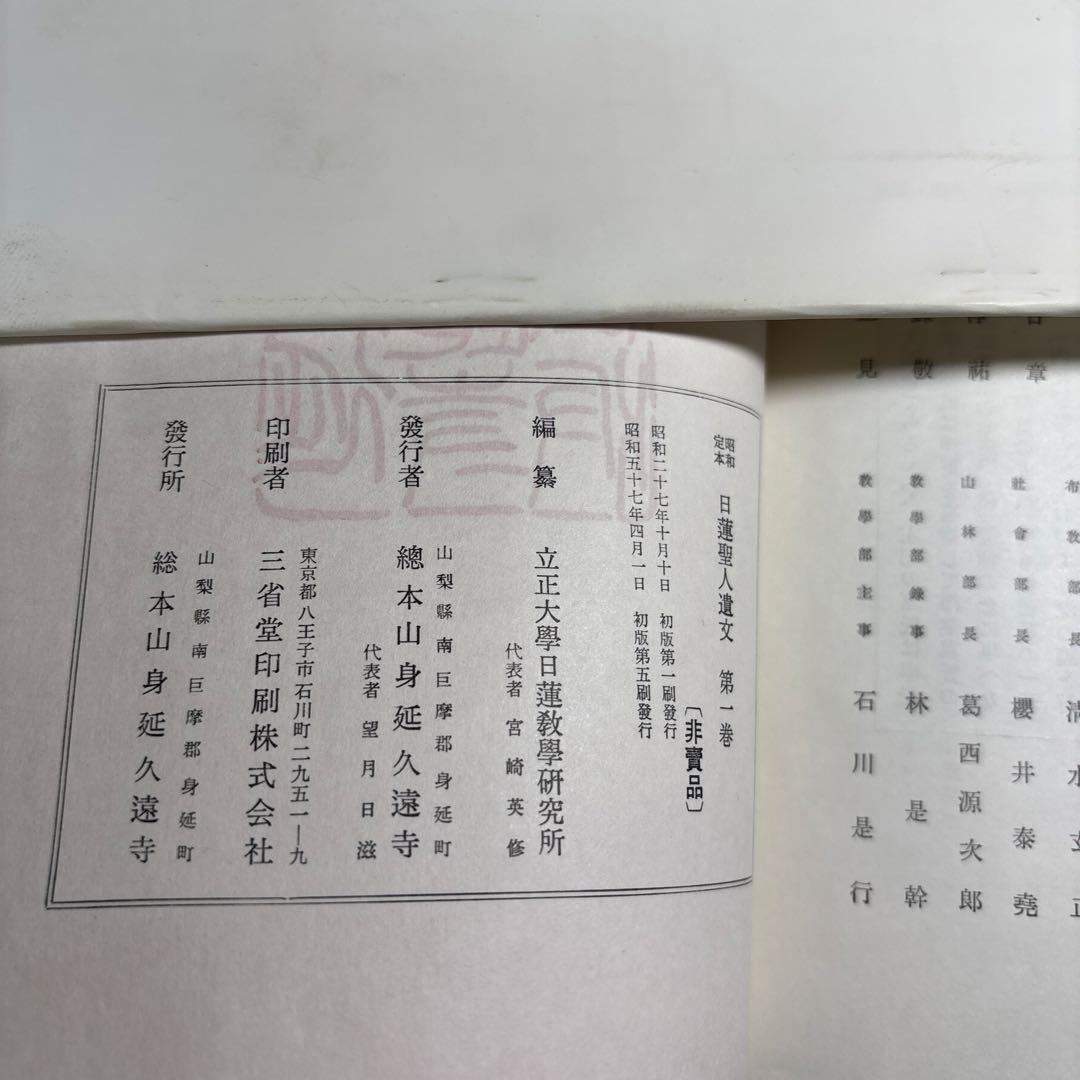 布敎部長 清水文正
章
社會部長 櫻井泰堯
祐
山林部長 葛西源次郎
敬
敎學部錄事 林是幹
見
敎學部主事 石川是行
昭和定本 日蓮聖人遺文 第一巻
〔非賣品〕
昭和二十七年十月十日 初版第一刷發行
昭和五十七年四月一日 初版第五刷發行
編纂 立正大學日蓮敎學研究所
代表者 宮崎英修
山梨縣南巨摩郡身延町
發行者 總本山身延久遠寺
代表者 望月日滋
東京都八王子市石川町二九五一―九
印刷者 三省堂印刷株式会社
山梨縣南巨摩郡身延町
發行所 総本山身延久遠寺